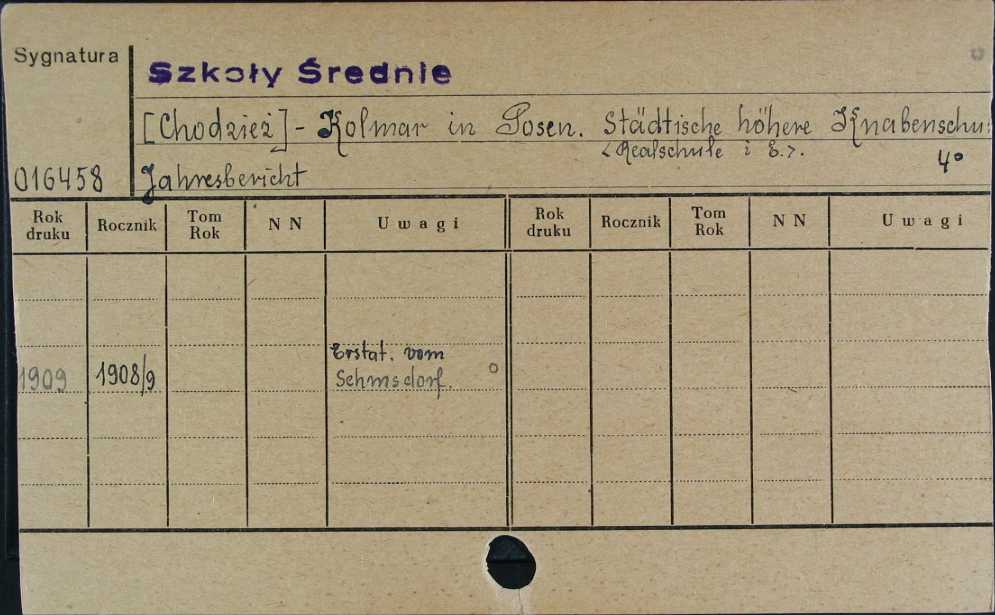 Sygnatura
Szkoły Średnie
[Chodzież] - Kolmar in Posen. Städtische höhere Knabenschu:
<Realschule i E.>.
4°
016458 Jahresbericht
Rok druku Rocznik Tom Rok N N Uwagi Rok druku Rocznik Tom Rok N N Uwagi
Erstat. vom
1909 1908/9 Sehmsdorf.